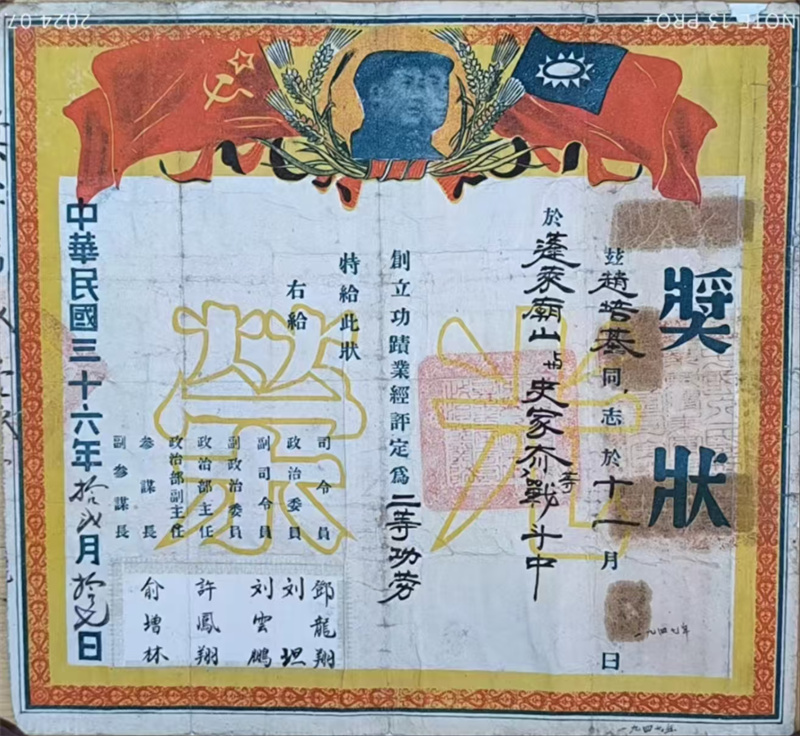 獎狀
茲趙培基同志於十一月 日
一九四七年
於蓬萊廟山與史家夼等戰斗中
創立功蹟業經評定爲二等功劳
特給此狀
右給
司令員 鄧龍翔
政治委員 刘坦
副司令員 刘雲鵬
副政治委員
政治部主任 許鳳翔
政治部副主任
參謀長 俞增林
副參謀長
中華民國三十六年拾弍月 日
光榮
一九四七年
NOTE 13 PRO+
2024.07